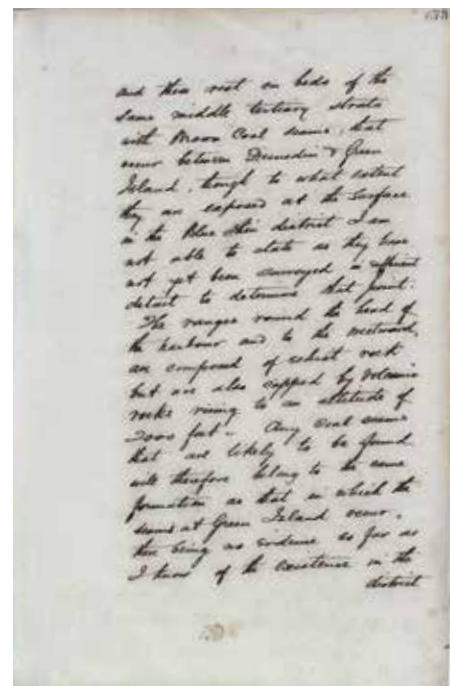 and these rest on beds of the
same middle tertiary strata
with Brown Coal seams, that
occur between Dunedin & Green
Island, though to what extent
they are exposed at the surface
in the Blue Skin district I am
not able to state as they have
not yet been surveyed in sufficient
detail to determine that point.
The ranges round the head of
the harbour and to the westward,
are composed of schist rock
but are also capped by Volcanic
rocks rising to an altitude of
2000 feet. Any coal seams
that are likely to be found
will therefore belong to the same
formation as that in which the
seams at Green Island occur,
there being no evidence so far as
I know of the existence in the
district